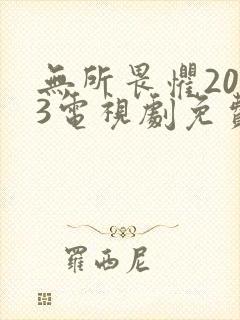 無所畏懼20
3電視劇免費
羅西尼